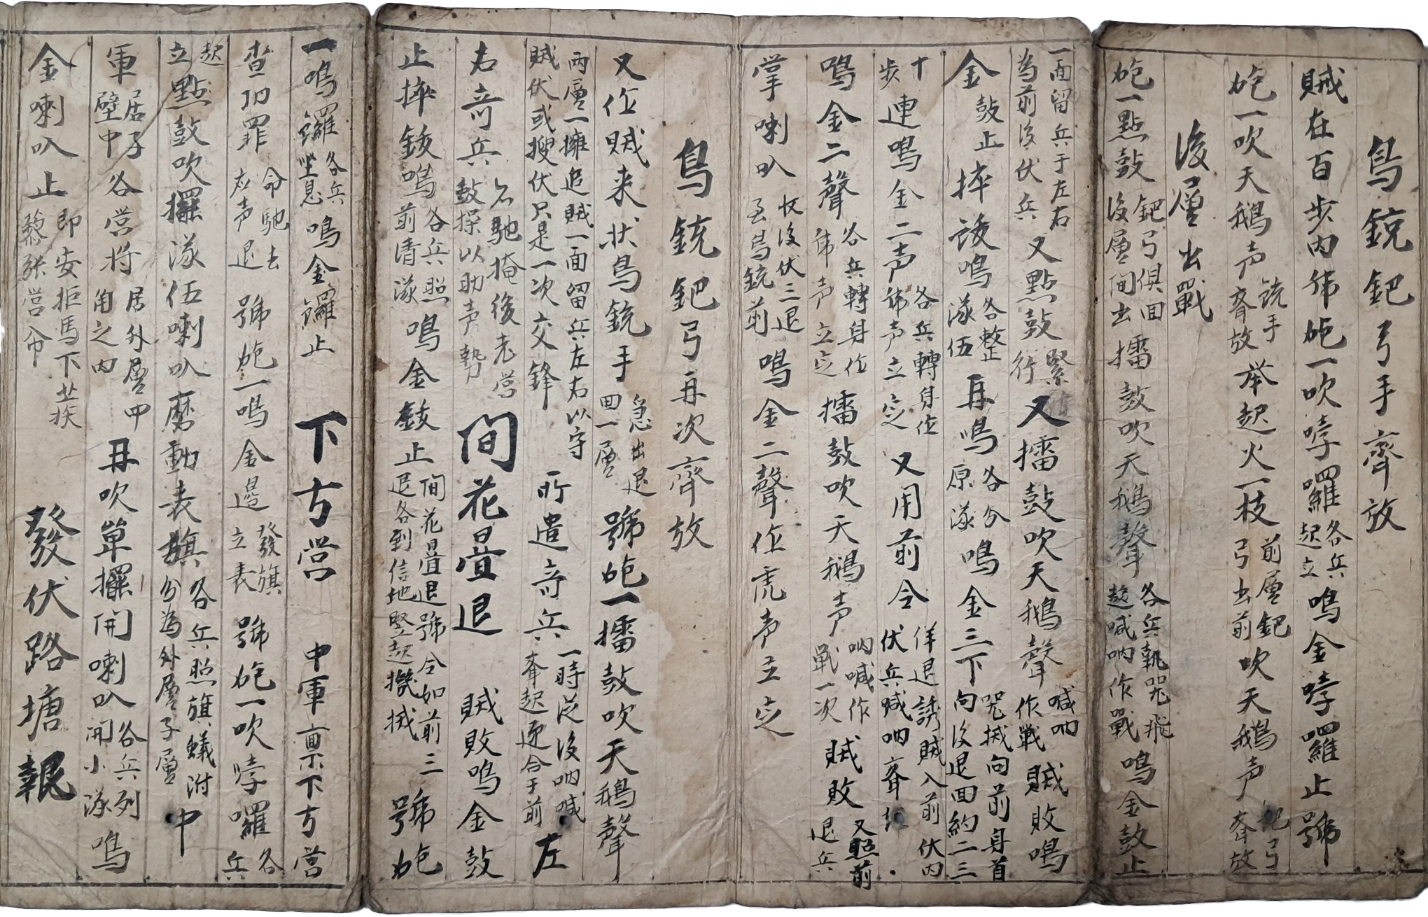 鳥銃鈀弓手齊放
賊在百步内号炮一吹哱囉各兵起立鳴金哱囉止號
炮一吹天鵝声銃手齊放举起火一枝前層鈀弓出前吹天鵝声鈀弓齊放
後層出戰
炮一點鼓鈀弓俱回後層間出擂鼓吹天鵝聲各兵執器飛趕喊吶作戰鳴金鼓止
一面留兵于左右為前後伏兵又點鼓緊行又擂鼓吹天鵝聲喊吶作戰賊敗鳴
金鼓止摔鈸鳴各整隊伍再鳴各分原隊鳴金三下器械向前身首向後退回約二三
十步連鳴金二声各兵轉身作号声立定又用前令佯退誘賊入前伏内伏兵喊吶齊
鳴金二聲各兵轉身作号声立定擂鼓吹天鵝声吶喊作戰一次賊敗又照前退兵
掌喇叭收後伏三退至鳥銃前鳴金二聲作虎声立定
鳥銃鈀弓再次齊放
又作賊来状鳥銃手急出退回一層號炮一擂鼓吹天鵝聲
兩層一擁追賊一面留兵左右以守賊伏或搜伏只是一次交鋒所遣奇兵一時從後吶喊齊起逐合于前左
右奇兵右馳掩後老营鼓操以助声勢間花疊退賊敗鳴金鼓
止摔鈸鳴各兵照前清隊鳴金鼓止間花疊退號令如前三退各到信地竪起機械號炮
一鳴鑼各兵坐息鳴金鑼止下方营中軍禀下方营
查功罪命馳去应声退號炮一鳴金邊發旗立表號炮一吹哱囉各兵
起立點鼓吹擺隊伍喇叭磨動表旗各兵照旗蟻附分為外層子層中
軍居子壁中各营将居外層四角之内再吹單擺開喇叭各兵列開小隊鳴
金喇叭止即安拒馬下蒺藜張营帘發伏路塘報